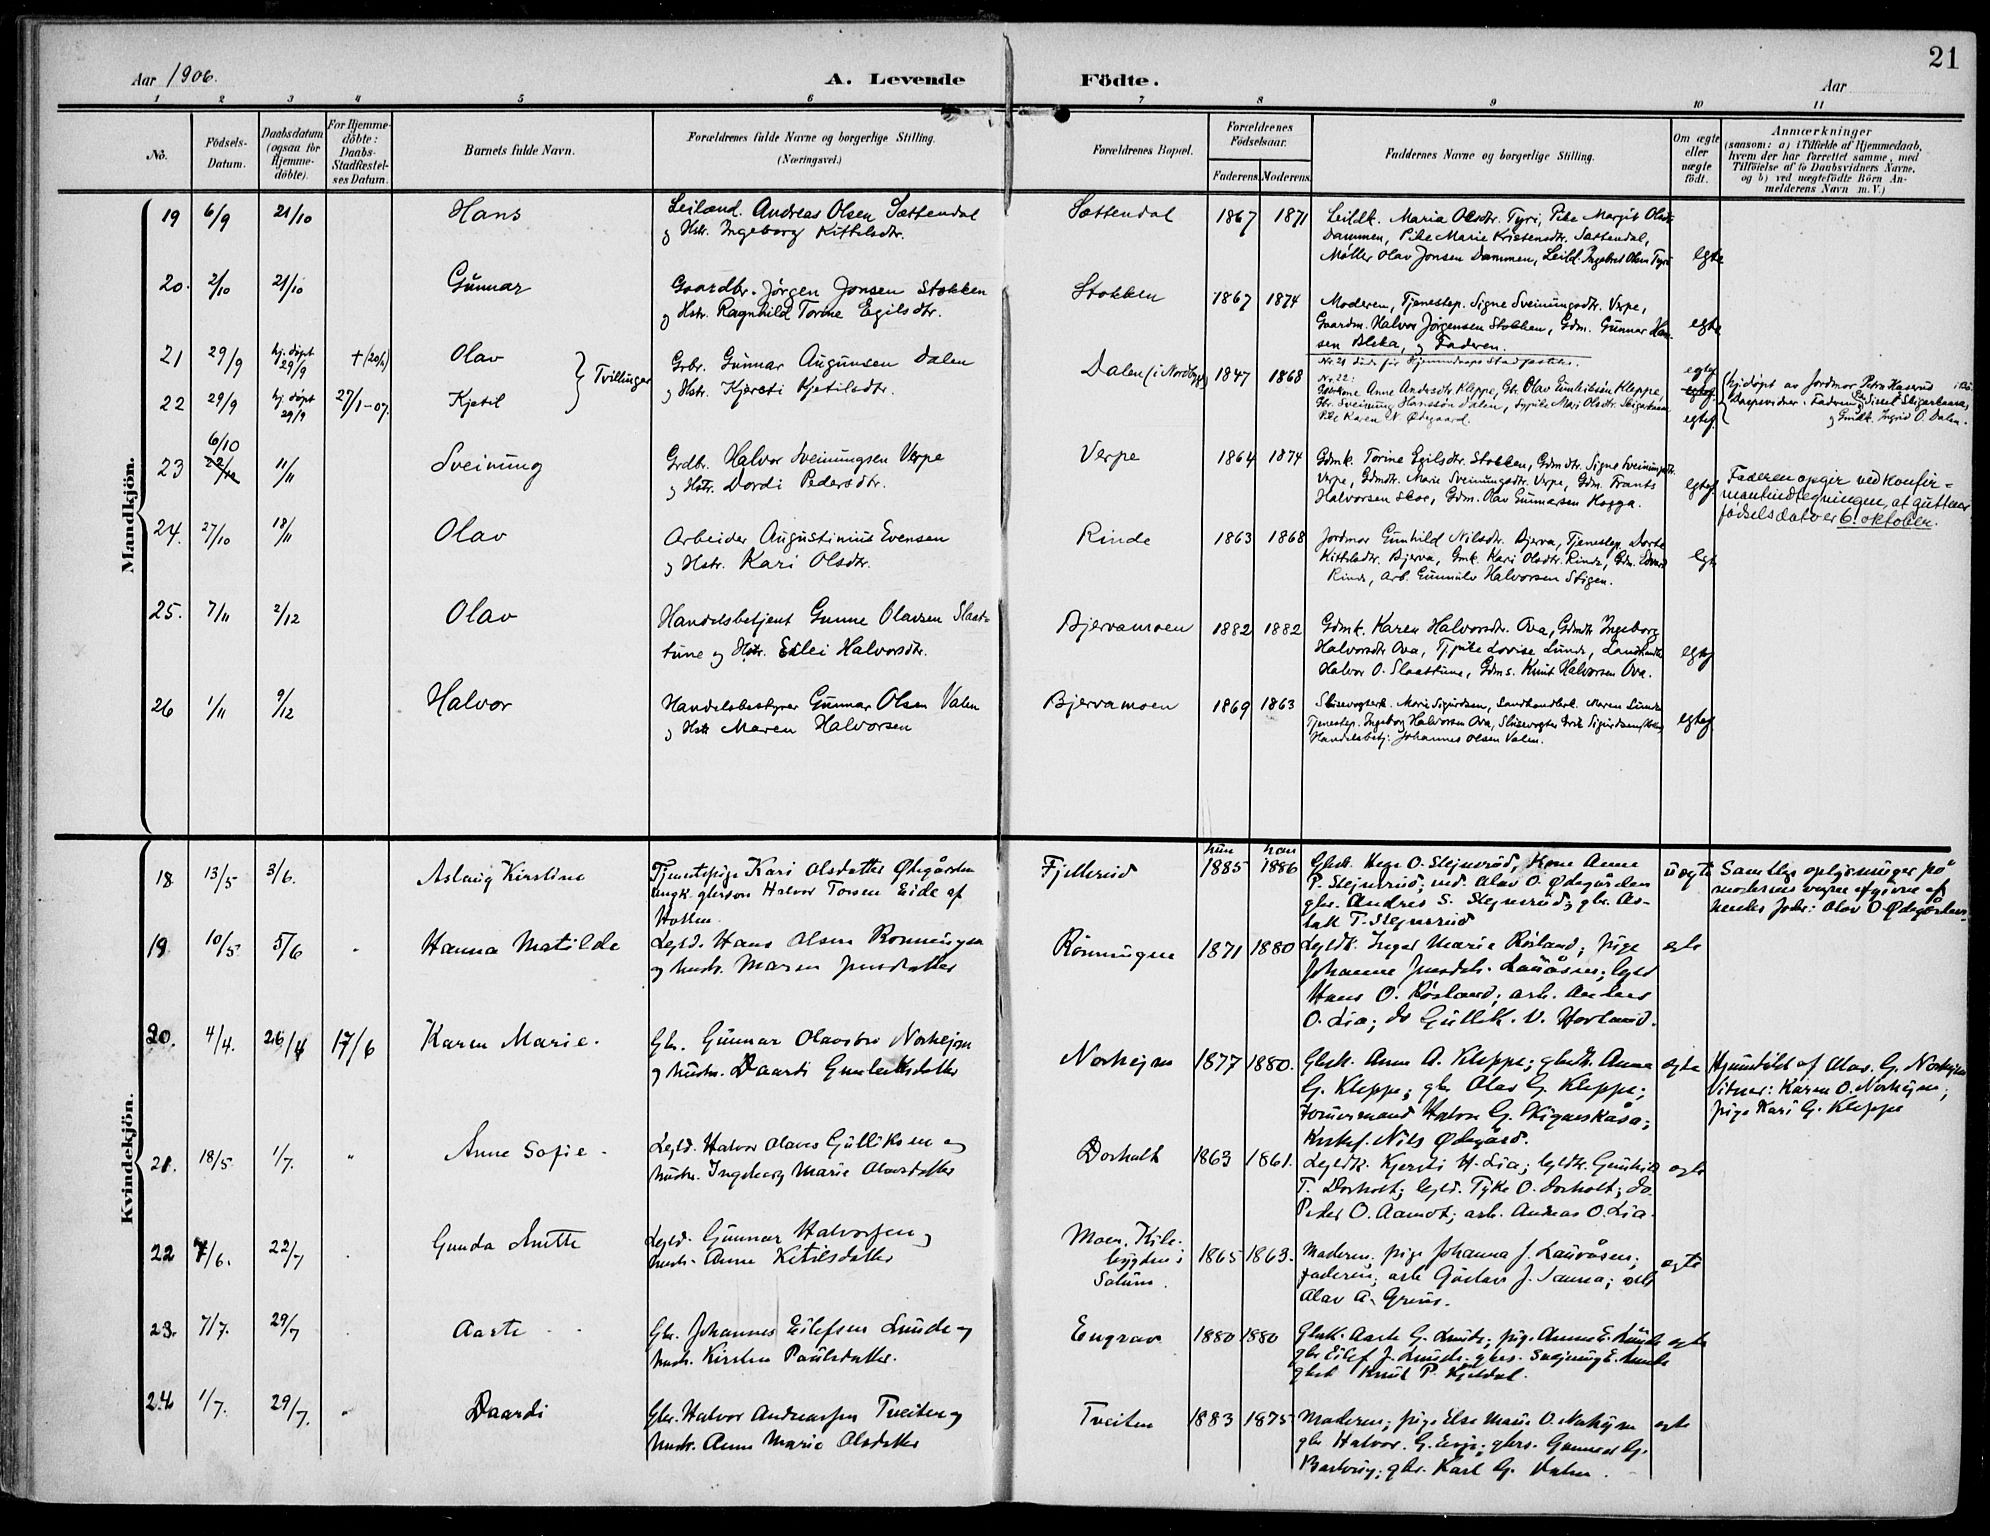 21
Aar 1906.
A. Levende Födte.
Aar
1 2 3 4 5 6 7 8 9 10 11
No.
Födsels-Datum.
Daabsdatum (ogsaa for Hjemme-döbte).
For Hjemme-döbte: Daabs-Stadfæstel-ses Datum.
Barnets fulde Navn.
Forældrenes fulde Navne og borgerlige Stilling. (Næringsvei.)
Forældrenes Bopæl.
Forældrenes Födselsaar.
Faderens. Moderens.
Faddernes Navne og borgerlige Stilling.
Om ægte eller uægte födt.
Anmærkninger
(saasom: a) i Tilfælde af Hjemmedaab,
hvem der har forrettet samme, med
Tilföielse af to Daabsvidners Navne,
og b) ved uægtefödte Börn An-
melderens Navn m. V.)
Mandkjön.
19 6/9 21/10 Hans
Leilænd. Andreas Olsen Sættendal
og Hstr. Ingeborg Kittilsdtr.
Sættendal 1867 1871
Leildk. Maria Olsdtr. Tyri, Pike Margit Olsdtr
Dammen, Pike Marie Kristensdtr. Sættendal,
Møller Olav Jonsen Dammen, Leild. Ingebret Olsen Tyri
egte
20. 2/10 21/10 Gunnar
Gaardbr. Jørgen Jonsen Stokken
og Hstr. Ragnhild Torine Egilsdtr.
Stokken 1867 1874
Moderen, Tjenestep. Signe Sveinungsdtr. Verpe,
Gaardm. Halvor Jørgensen Stokken, Gdm. Gunnar Han-
sen Bleka, og Faderen.
egte
21 29/9 hj. døpt 29/9 + (20/2) Olav
22 29/9 hj. døpt 29/9 27/1-07. Kjetil
} Tvillinger
Grbr. Gunnar Augunsen Dalen
og Hstr. Kjersti Kjetilsdtr.
Dalen (i Nordbygd) 1847 1868
Nr. 21 døde før Hjemmedaaps Stadfæstelse.
Nr. 22:
Anne Andersdtr. Kleppe, Gbr. Olav Gunleiksen Kleppe,
Gbr. Sveinung Hanssøn Dalen,
Pike Karen N. Ødegaard.
egtef.
egtef.
hj.døpt av Jordmor Petra Haserud
Daapsvidner: Faderen,
og Gmdk. Ingrid O. Dalen.
23 6/10 22/10 11/11 Sveinung
Grdbr. Halvor Sveinungsen Verpe
og Hstr. Dordi Pedersdtr.
Verpe 1864 1874
Gdmk. Torine Egilsdtr. Stokken, Gdmdtr. Signe Sveinungsdtr.
Verpe, Gdmdtr. Marie Sveinungsdtr. Verpe, Gdm. Frants
Halvorsen Skoe, Gdm. Olav Gunnarsen Hogga.
egtef.
Faderen opgir ved konfir-
mantindtegningen, at guttens
fødselsdato er 6. oktober.
24. 27/10 18/11 Olav
Arbeider Augustinius Evensen
og Hstr. Kari Olsdtr.
Rinde 1863 1868
Jordmor Gunhild Nilsdtr. Bjerva, Tjenestep. Dorte
Kittilsdtr. Bjerva, Gmk. Kari Olsdtr. Rinde, Gdm. Edvard
Rinde, Arb. Gunnulv Halvorsen Stigen.
egte
25. 7/11 2/12 Olav
Handelsbetjent Gunne Olavsen Slaat-
tune og Hstr. Eilei Halvorsdtr.
Bjervamoen 1882 1882
Gdmk. Karen Halvorsdtr. Ova, Gdmdtr Ingeborg
Halvorsdtr Ova, Tj.pike Lovise Lunde, Landhandler
Halvor O. Slaattune, Gdms. Knut Halvorsen Ova.
egtef
26 1/11 9/12 Halvor
Handelsbestyrer Gunnar Olsen Valen
og Hstr Maren Halvorsen
Bjervamoen 1869 1863
Slusevogterk. Marie Sigurdsen, Landhandlerk. Maren Lunde
Tjenestep. Ingeborg Halvorsen Ova, Slusevogter Erik Sigurdsen,
Handelsbetj. Johannes Olsen Valen.
egtef
Kvindekjön.
18 13/5 3/6. Aslaug Kirstine
Tjenestepige Kari Olsdatter Ødegården
ungk. gbrsøn Halvor Torsen Eide af
Hollen
Fjellerud hun 1885 han 1886
Gbrk. Hege O. Slejnsrud, Kone Anne
P. Slejnsrud; ved. Olav O. Ødegården
gbr. Andres S. Slejnsrud; gbr. As-
lak T. Slejnsrud
uægte
Samtlige oplysninger på
moderens vegne afgivne af
hendes fader: Olav O. Ødegården.
19 10/5. 5/6 Hanna Matilde
Lejld. Hans Olsen Rønningen
og hustr. Maren Jensdatter
Rönningen 1871 1880
Lejldk. Inger Marie Røsland; pige
Johanne Jensdtr. Lauåsen; lejld
Hans O. Røsland; arb. Anders
O. Lia; do Gullik. V. Horland.
egte
20. 4/4. 26/4 17/6 Karen Marie.
Gbr. Gunnar Olavsen Norheim
og hustr. Daardi Gunleiksdatter
Norhejm 1877 1880.
Gbrk. Anne A. Kleppe; gbrdtr. Anne
G. Kleppe; gbr Olav G. Kleppe;
Halvor G.
Nils Ødegård.
egte
Hjemdöbt af Olav. G. Norhejm
Vitner: Karen O. Norhejm;
pige Kari G. Kleppe
21. 18/5. 1/7. Anne Sofie.
Lejld. Halvor Olavs Gulliksen og
hustr. Ingeborg Marie Olavsdatter
Dorholt 1863 1861.
Lejldk. Kjersti H. Lia; lejldk. Gunhild
T. Dorholt; lejld. Tyke O. Dorholt; do
Peder O. Aamot; arb. Andreas O. Lia.
egte
22 7/6. 22/7 Gunda Anette
Lejld. Gunnar Halvorsen og
hustr. Anne Ketilsdatter
Moen, Kile-
bygden i
Solum. 1865 1863.
Moderen; pige Johanna J. Lauvåsen;
faderen; arb Gustav J. Sanna;
Olav A.
egte
23. 7/7. 29/7 Aaste
Gbr. Johannes Eilefsen Lunde og
hustr. Kirsten Paulsdatter.
Engrav 1880 1880
Gbrk. Aaste G. Lunde; pige Anne E. Lunde
gbr Eilef J. Lunde. gbrs. Svejnung E. Lunde
gbrs Knut P. Kjeldal.
egte
24. 1/7. 29/7. Daardi
Gbr. Halvor Andreassen Tveiten og
hustr. Anne Marie Olsdatter
Tveiten 1883 1875
Moderen; pige Else Marie O. Norhejm
gbr Halvor. G. Eeje; gbrs. Gunnar G.
gbr. Karl G. Valen.
egte